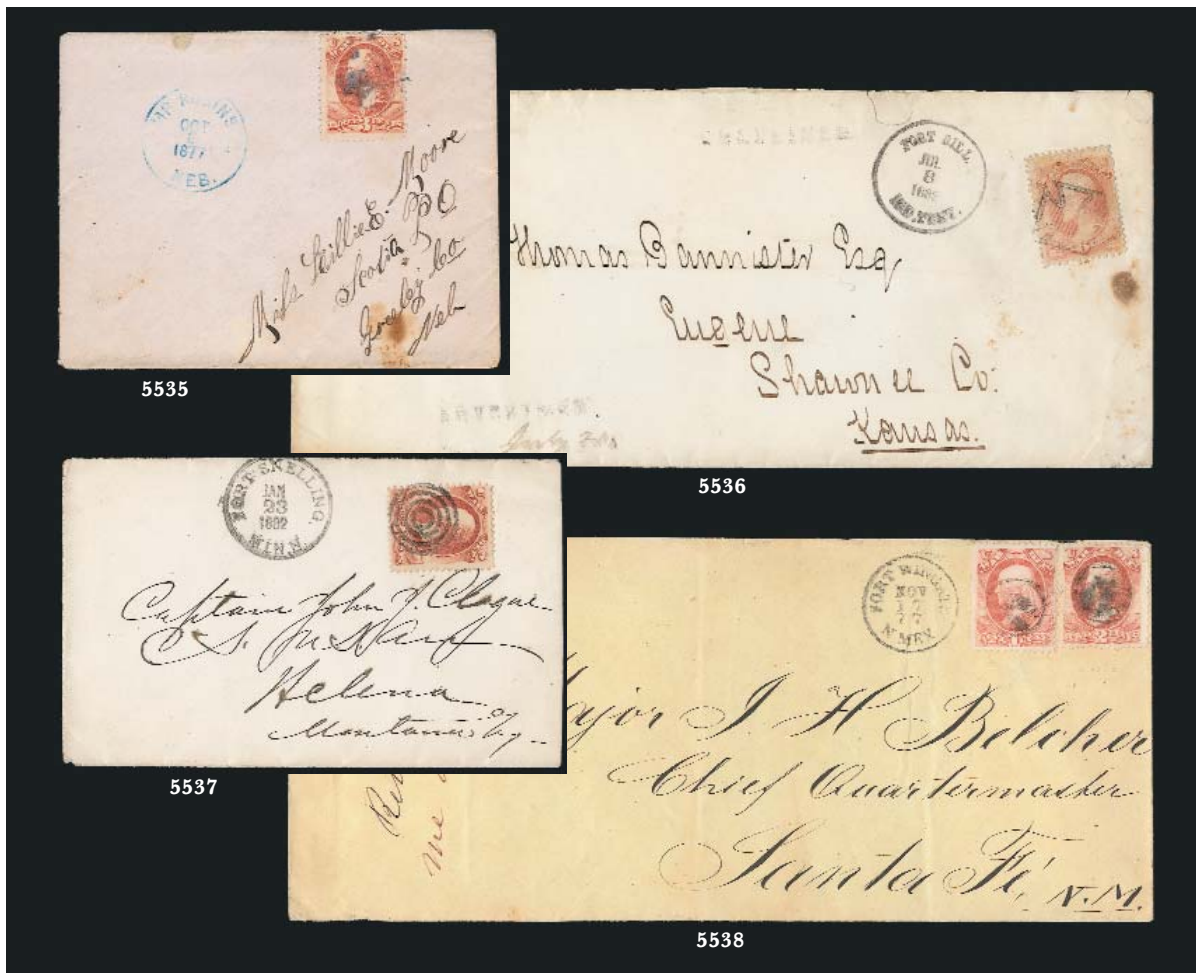 OCT
1877
NEB.
Miss Lillie E. Moore
Scotia P O
Greeley Co
Neb
5535
ADVERTISED
FORT SILL,
JUL
8
IND. TERY.
Thomas Bannister Esq
Eugene
Shawnee Co:
Kansas.
ADVERTISED
July
5536
FORT SNELLING,
JAN
23
1882
MINN.
Captain John J. Clague
Helena
Montana Ty
5537
FORT WINGATE
NOV
17
77
N. MEX.
Major J. H Belcher
Chief Quartermaster
Santa Fé, N.M.
me
5538